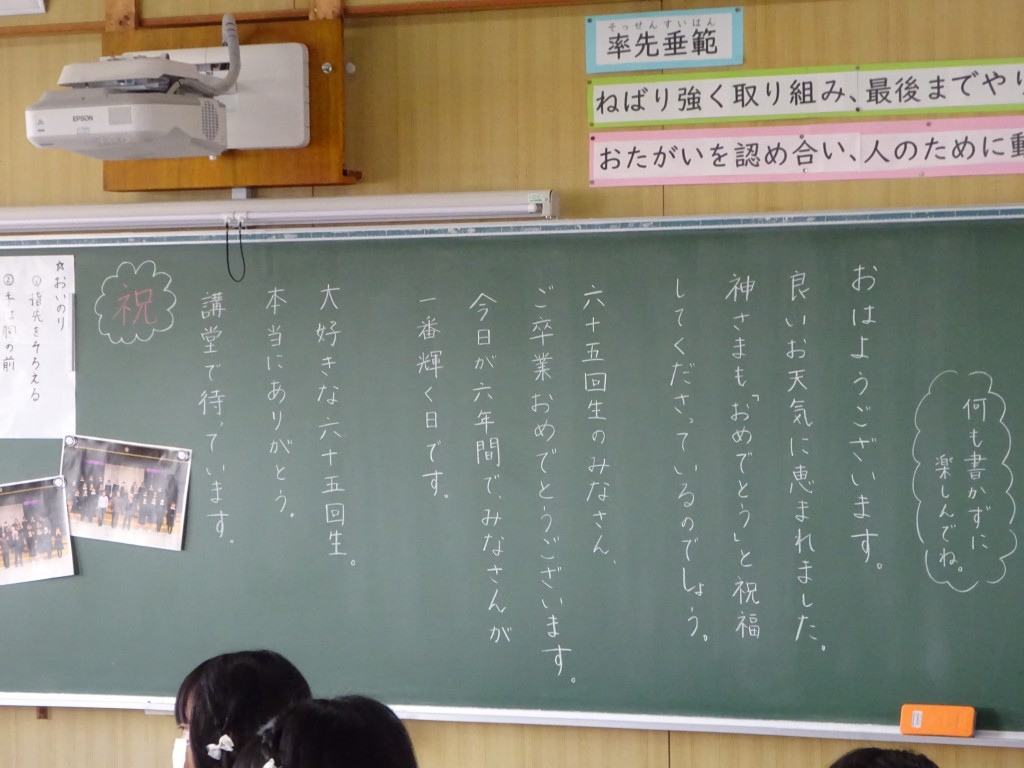 そっせんすいはん
率先垂範
ねばり強く取り組み、最後までやり
おたがいを認め合い、人のために動
EPSON
何も書かずに
楽しんでね。
おはようございます。
良いお天気に恵まれました。
神さまも「おめでとう」と祝福
してくださっているのでしょう。
六十五回生のみなさん、
ご卒業おめでとうございます。
今日が六年間で、みなさんが
一番輝く日です。
大好きな六十五回生。
本当にありがとう。
講堂で待っています。
祝
☆おいのり
①指先をそろえる
②の前